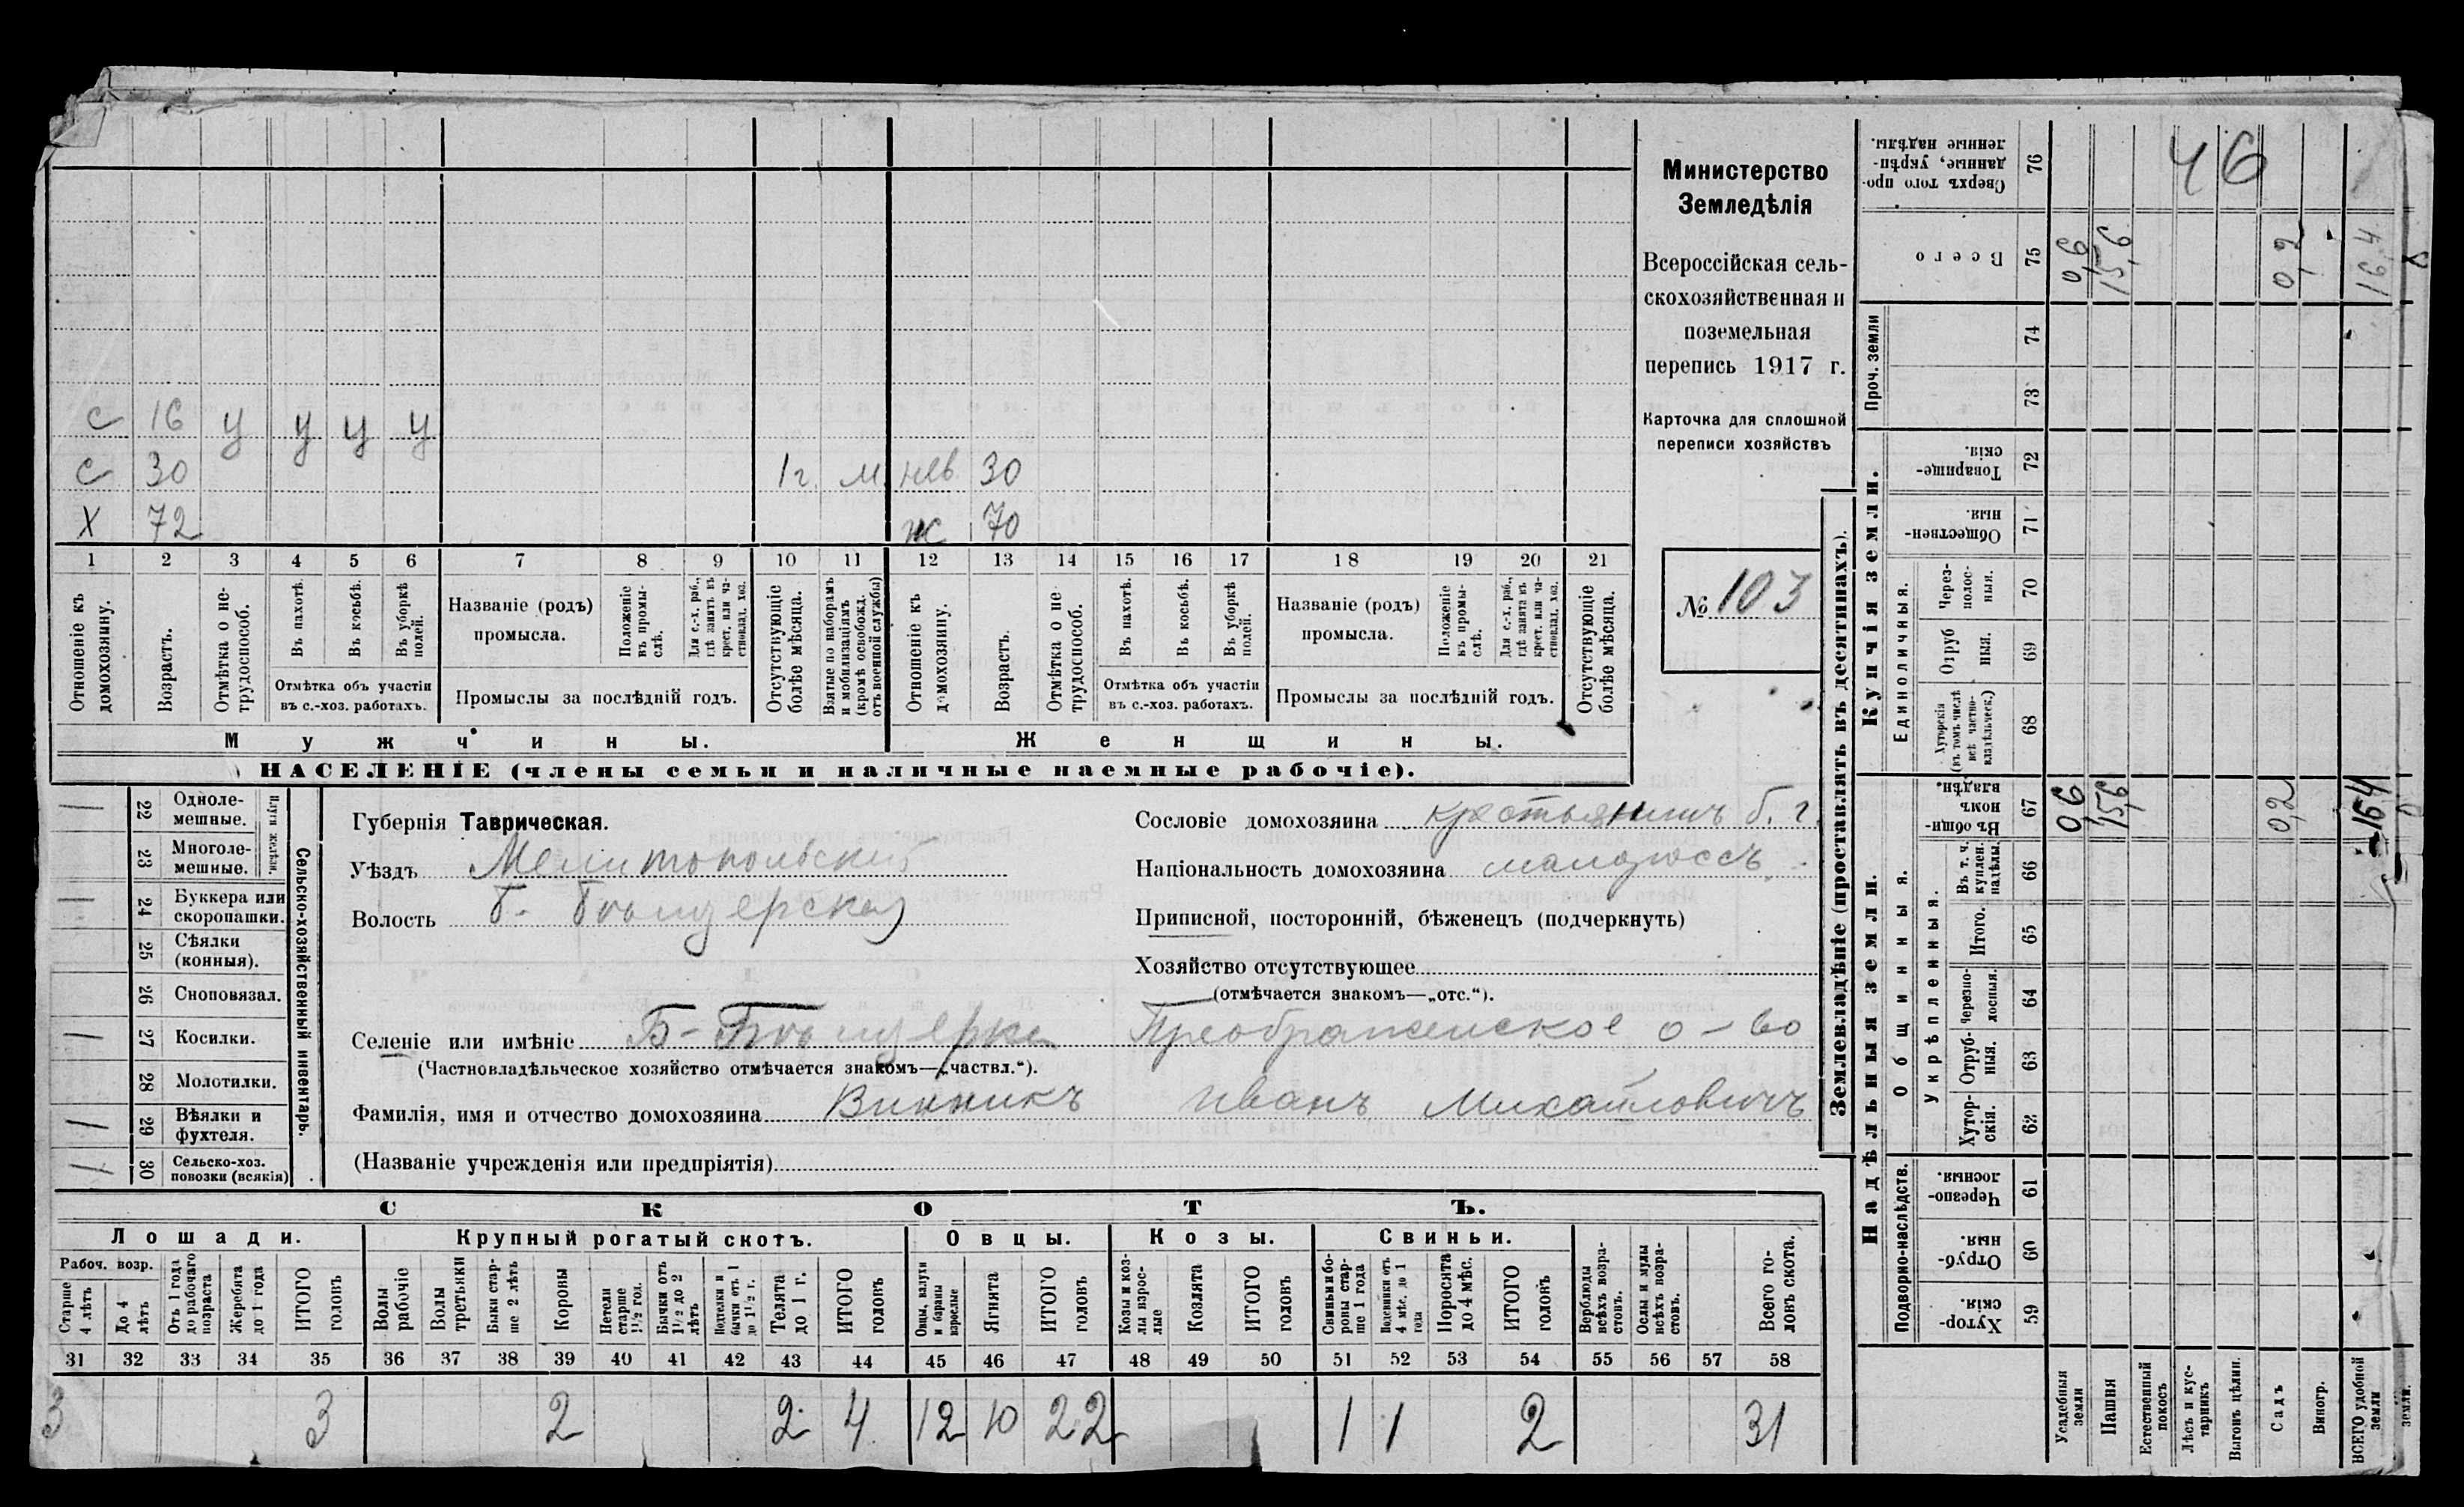 с 16 у у у у
с 30 1 г. м. нев. 30
х 72 ж 70
1 2 3 4 5 6 7 8 9 10 11 12 13 14 15 16 17 18 19 20 21
Отношеніе къ домохозяину.
Возрастъ.
Отмѣтка о нетрудоспособ.
Въ пахотѣ.
Въ косьбѣ.
Въ уборкѣ полей.
Отмѣтка объ участіи
въ с.-хоз. работахъ.
Названіе (родъ)
промысла.
Положеніе въ промыслѣ.
Для с.-х. раб., гдѣ занятъ въ крест. или частновлад. хоз.
Промыслы за послѣдній годъ.
Отсутствующіе болѣе мѣсяца.
Взятые по наборамъ и мобилизаціямъ (кромѣ освобожд. отъ военной службы)
Отношеніе къ домохозяину.
Возрастъ.
Отмѣтка о нетрудоспособ.
Въ пахотѣ.
Въ косьбѣ.
Въ уборкѣ полей.
Отмѣтка объ участіи
въ с.-хоз. работахъ.
Названіе (родъ)
промысла.
Положеніе въ промыслѣ.
Для с.-х. раб., гдѣ занята въ крест. или частновлад. хоз.
Промыслы за послѣдній годъ.
Отсутствующіе болѣе мѣсяца.
Мужчины.
Женщины.
НАСЕЛЕНІЕ (члены семьи и наличные наемные рабочіе).
Министерство
Земледѣлія
Всероссійская сель-
скохозяйственная и
поземельная
перепись 1917 г.
Карточка для сплошной
переписи хозяйствъ
№ 103
Сельско-хозяйственный инвентарь.
Плуги желѣзн.
22 Одноле-
мешные.
23 Многоле-
мешные.
24 Буккера или
скоропашки.
25 Сѣялки
(конныя).
26 Сноповязал.
27 Косилки.
28 Молотилки.
29 Вѣялки и
фухтеля.
30 Сельско-хоз.
повозки (всякія)
Губернія Таврическая.
Уѣздъ Мелитопольскій
Волость Б.
Селеніе или имѣніе Б-
Преображенское о-во
(Частновладѣльческое хозяйство отмѣчается знакомъ—„частвл.“).
Фамилія, имя и отчество домохозяина Винникъ Иванъ Михайловичъ
(Названіе учрежденія или предпріятія)
Сословіе домохозяина крестьянинъ б. г.
Національность домохозяина малороссъ.
Приписной, посторонній, бѣженецъ (подчеркнуть)
Хозяйство отсутствующее
(отмѣчается знакомъ—„отс.“).
СКОТЪ.
Лошади. Крупный рогатый скотъ. Овцы. Козы. Свиньи.
Рабоч. возр.
Старше 4 лѣтъ
До 4 лѣтъ
Отъ 1 года до рабочаго возраста
Жеребята до 1 года
ИТОГО головъ
Волы рабочіе
Волы третьяки
Быки старше 2 лѣтъ
Коровы
Нетели старше 1½ год.
Бычки отъ 1½ до 2 лѣтъ
Подтелки и бычки отъ 1 до 1½ г.
Телята до 1 г.
ИТОГО головъ
Овцы, валухи и бараны взрослые
Ягнята
ИТОГО головъ
Козы и козлы взрослые
Козлята
ИТОГО головъ
Свиньи и боровы старше 1 года
Подсвинки отъ 4 мѣс. до 1 года
Поросята до 4 мѣс.
ИТОГО головъ
Верблюды всѣхъ возрастовъ.
Ослы и мулы всѣхъ возрастовъ.
Всего головъ скота.
31 32 33 34 35 36 37 38 39 40 41 42 43 44 45 46 47 48 49 50 51 52 53 54 55 56 57 58
3 3 2 2 4 12 10 22 1 1 2 31
Землевладѣніе (проставлять въ десятинахъ).
Купчія земли.
Надѣльныя земли.
Сверхъ того проданные, укрѣпленные надѣлы. 76
46
Всего 75 0,6 15,6 0,2 16,4
Проч. земли 74
73
Товарищескія. 72
Общественныя. 71
Единоличныя.
Черезполосныя. 70
Отрубныя. 69
Хуторскія (въ томъ числѣ всѣ частновладѣльческ.) 68
Общинныя.
Въ общинномъ владѣн. 67 0,6 15,6 0,2 16,4
Укрѣпленныя.
Въ т. ч. куплен. надѣлы. 66
Итого. 65
Черезполосныя. 64
Отрубныя. 63
Хуторскія. 62
Подворно-наслѣдств.
Черезполосныя. 61
Отрубныя. 60
Хуторскія. 59
Усадебныя земли
Пашня
Естественный покосъ
Лѣсъ и кустарникъ
Выгонъ цѣлин.
Садъ
Виногр.
ВСЕГО удобной земли
земли.